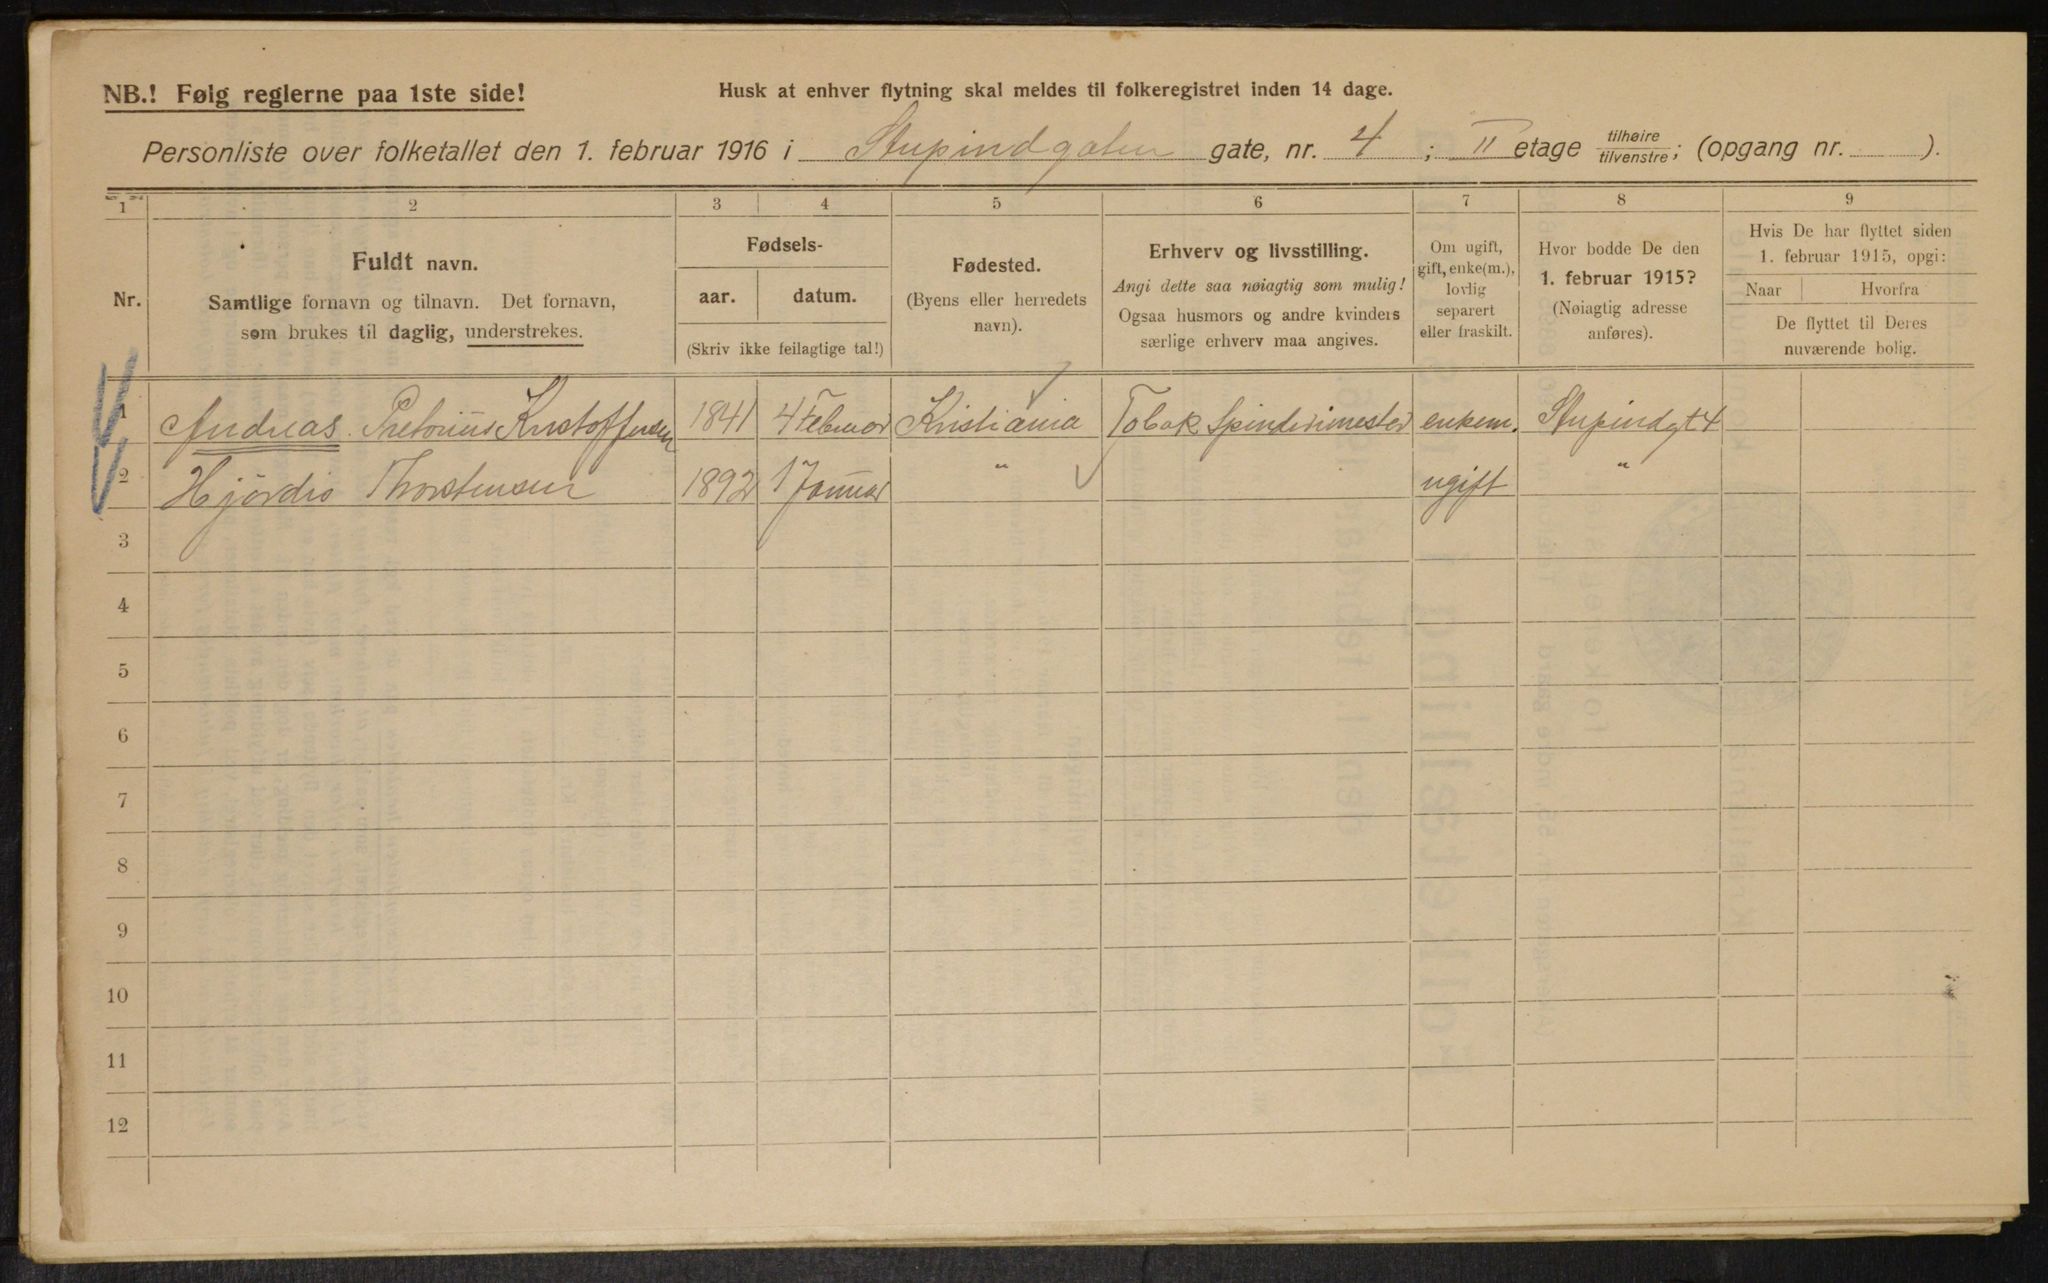 NB.! Følg reglerne paa 1ste side!
Husk at enhver flytning skal meldes til folkeregistret inden 14 dage.
Personliste over folketallet den 1. februar 1916 i Stupindgaten gate, nr. 4 ; II etage tilhøire/tilvenstre; (opgang nr. ).
1 2 3 4 5 6 7 8 9
Nr.
Fuldt navn.
Samtlige fornavn og tilnavn. Det fornavn,
som brukes til daglig, understrekes.
Fødsels-
aar. datum.
(Skriv ikke feilagtige tal!)
Fødested.
(Byens eller herredets
navn).
Erhverv og livsstilling.
Angi dette saa nøiagtig som mulig!
Ogsaa husmors og andre kvinders
særlige erhverv maa angives.
Om ugift,
gift, enke(m.),
lovlig
separert
eller fraskilt.
Hvor bodde De den
1. februar 1915?
(Nøiagtig adresse
anføres).
Hvis De har flyttet siden
1. februar 1915, opgi:
Naar Hvorfra
De flyttet til Deres
nuværende bolig.
1 Andreas Pretorius Kristoffersen 1841 4 Februar Kristiania Tobak Spinderimester enkem. Stupindgt 4
2 Hjørdis Thorstensen 1892 1 Januar " ugift "
3
4
5
6
7
8
9
10
11
12